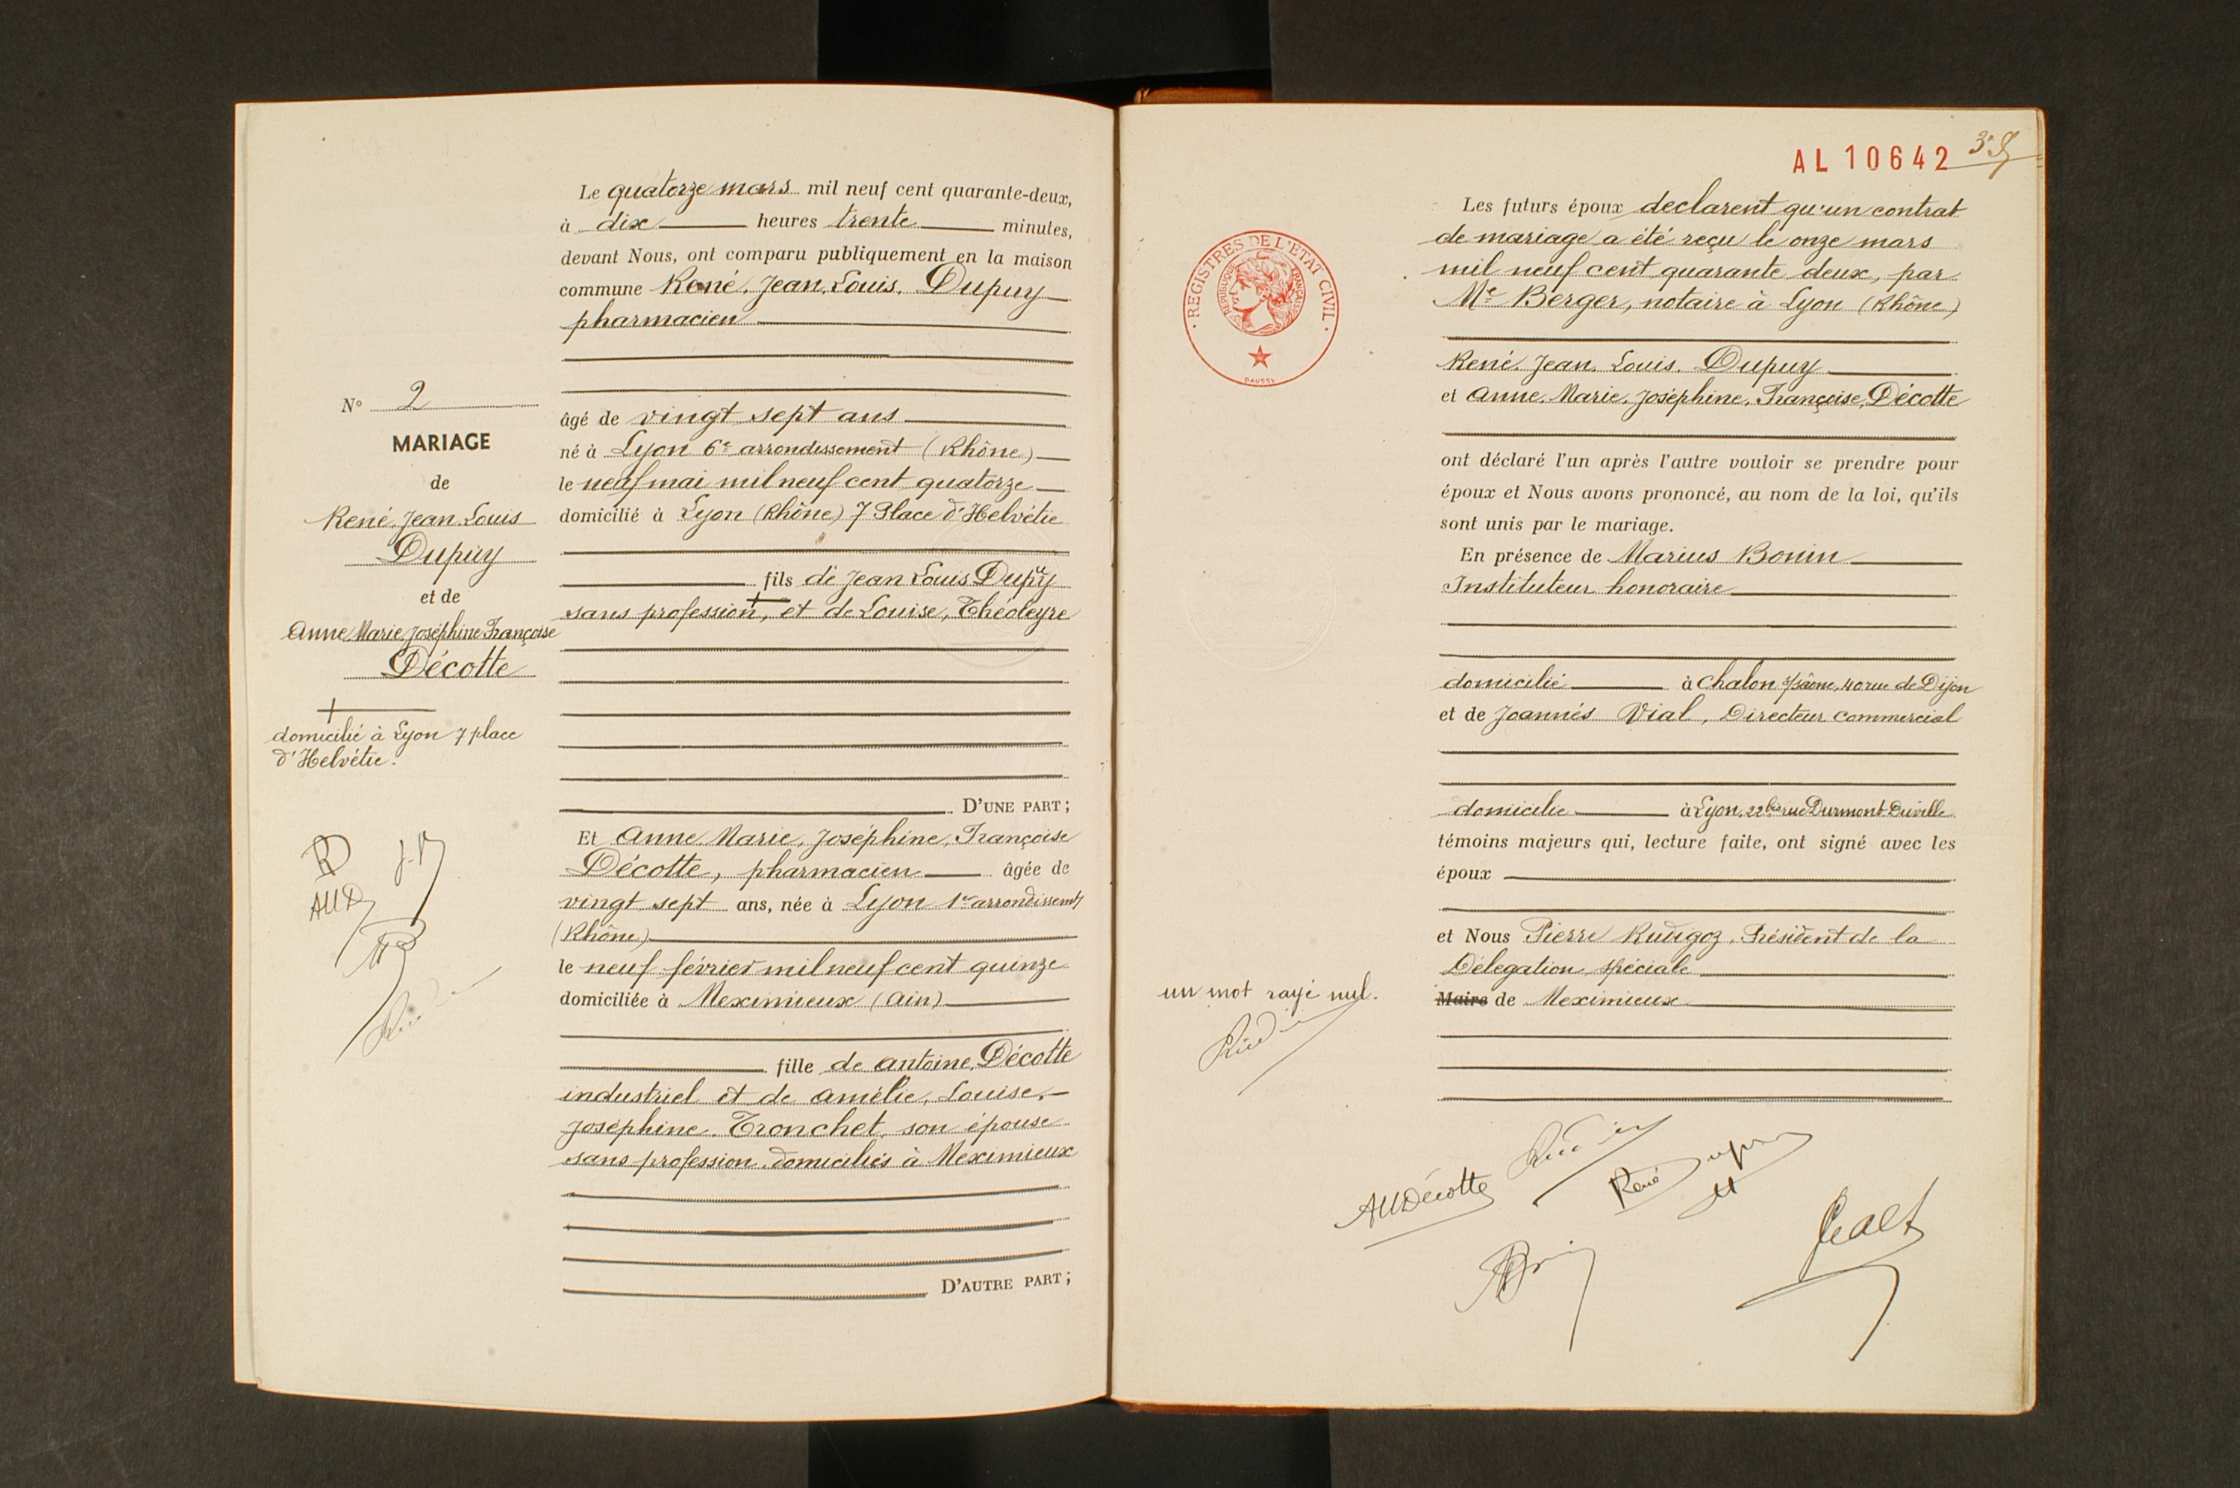 Le quatorze mars mil neuf cent quarante-deux,
à dix heures trente minutes,
devant Nous, ont comparu publiquement en la maison
commune René, Jean, Louis, Dupuy
pharmacien
âgé de vingt sept ans
né à Lyon 6e arrondissement (Rhône)
le neuf mai mil neuf cent quatorze
domicilié à Lyon (Rhône) 7 Place d'Helvétie
fils de Jean Louis Dupuy
sans profession, et de Louise, Théoleyre
D'UNE PART ;
Et Anne, Marie, Joséphine, Françoise
Décotte, pharmacien âgée de
vingt sept ans, née à Lyon 1er arrondissemt
(Rhône)
le neuf février mil neuf cent quinze
domiciliée à Meximieux (Ain)
fille de Antoine, Décotte
industriel et de Amélie, Louise,
Joséphine, Tronchet, son épouse
sans profession domiciliés à Meximieux
D'AUTRE PART ;
N° 2
MARIAGE
de
René, Jean, Louis
Dupuy
et de
Anne, Marie, Joséphine, Françoise
Décotte
domicilié à Lyon 7 place
d'Helvétie.
AL 10642
REGISTRES DE L'ETAT CIVIL
REPUBLIQUE FRANÇAISE
DAUSSY
Les futurs époux declarent qu'un contrat
de mariage a été reçu le onze mars
mil neuf cent quarante deux, par
Me Berger, notaire à Lyon (Rhône)
René, Jean, Louis, Dupuy
et Anne, Marie, Joséphine, Françoise, Décotte
ont déclaré l'un après l'autre vouloir se prendre pour
époux et Nous avons prononcé, au nom de la loi, qu'ils
sont unis par le mariage.
En présence de Marius Bonin
Instituteur honoraire
domicilié à Chalon s/Saône, 40 rue de Dijon
et de Joannès Vial, Directeur commercial
domicilié à Lyon, 22 bis rue Durmont Durville
témoins majeurs qui, lecture faite, ont signé avec les
époux
et Nous Pierre Rudigoz, Président de la
Délegation spéciale
Maire de Meximieux
un mot rayé nul.
AM Décotte
René Dupuy